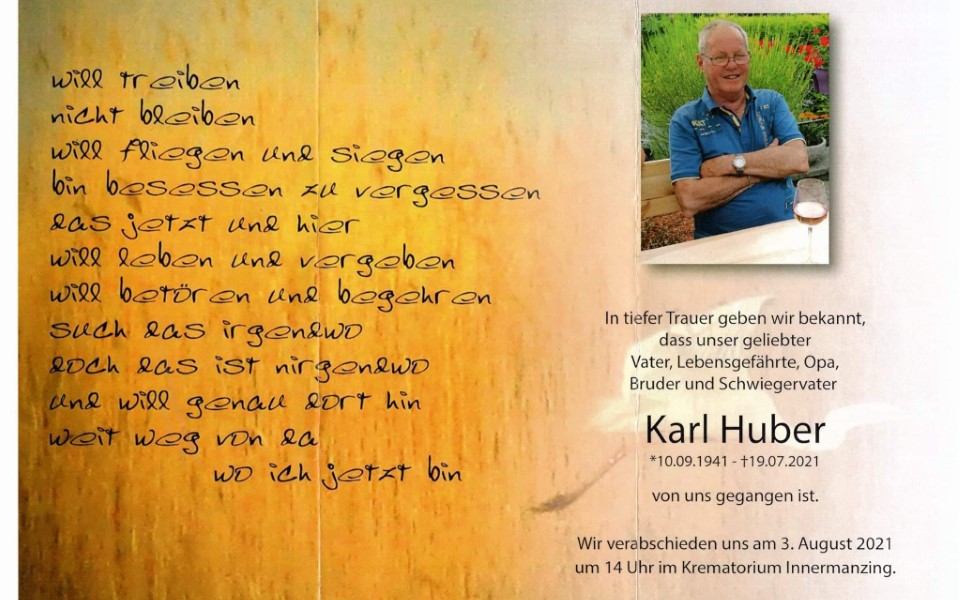 will treiben
nicht bleiben
will fliegen und siegen
bin besessen zu vergessen
das jetzt und hier
will leben und vergeben
will betören und begehren
such das irgendwo
doch das ist nirgendwo
und will genau dort hin
weit weg von da
wo ich jetzt bin
In tiefer Trauer geben wir bekannt,
dass unser geliebter
Vater, Lebensgefährte, Opa,
Bruder und Schwiegervater
Karl Huber
*10.09.1941 - †19.07.2021
von uns gegangen ist.
Wir verabschieden uns am 3. August 2021
um 14 Uhr im Krematorium Innermanzing.